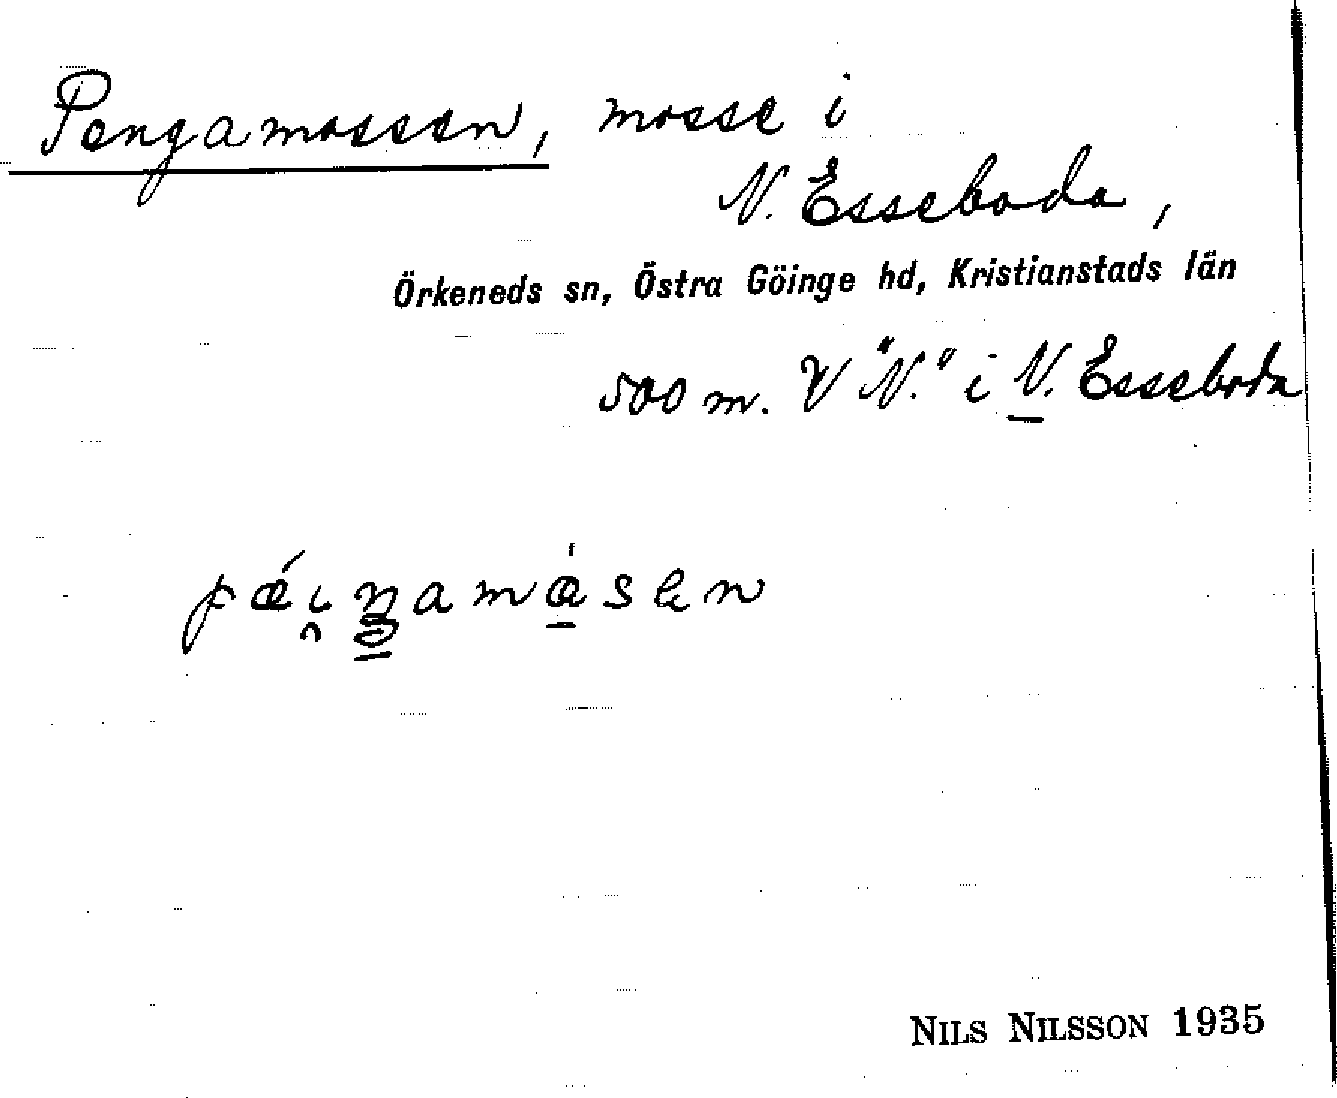 Pengamossen, mosse i
N. Esseboda,
Örkeneds sn, Östra Göinge hd, Kristianstads län
500 m. V "N." i N. Esseboda
NILS NILSSON 1935